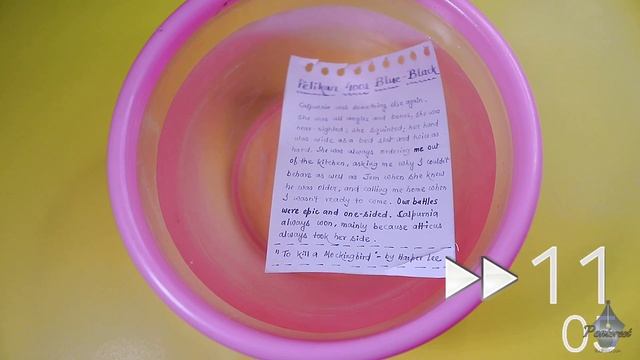 Pelikan 4001 Blue-Black
Calpurnia was something else again.
She was all angles and bones; she was
near sighted; she squinted; her hand
was wide as a bed slat and twice as
hard. She was always ordering me out
of the kitchen, asking me why I couldn't
behave as well as Jem when she knew
he was older, and calling me home when
I wasn't ready to come. Our battles
were epic and one-sided. Calpurnia
always won, mainly because atticus
always took her side.
"To kill a Mockingbird"- by Harper Lee
11